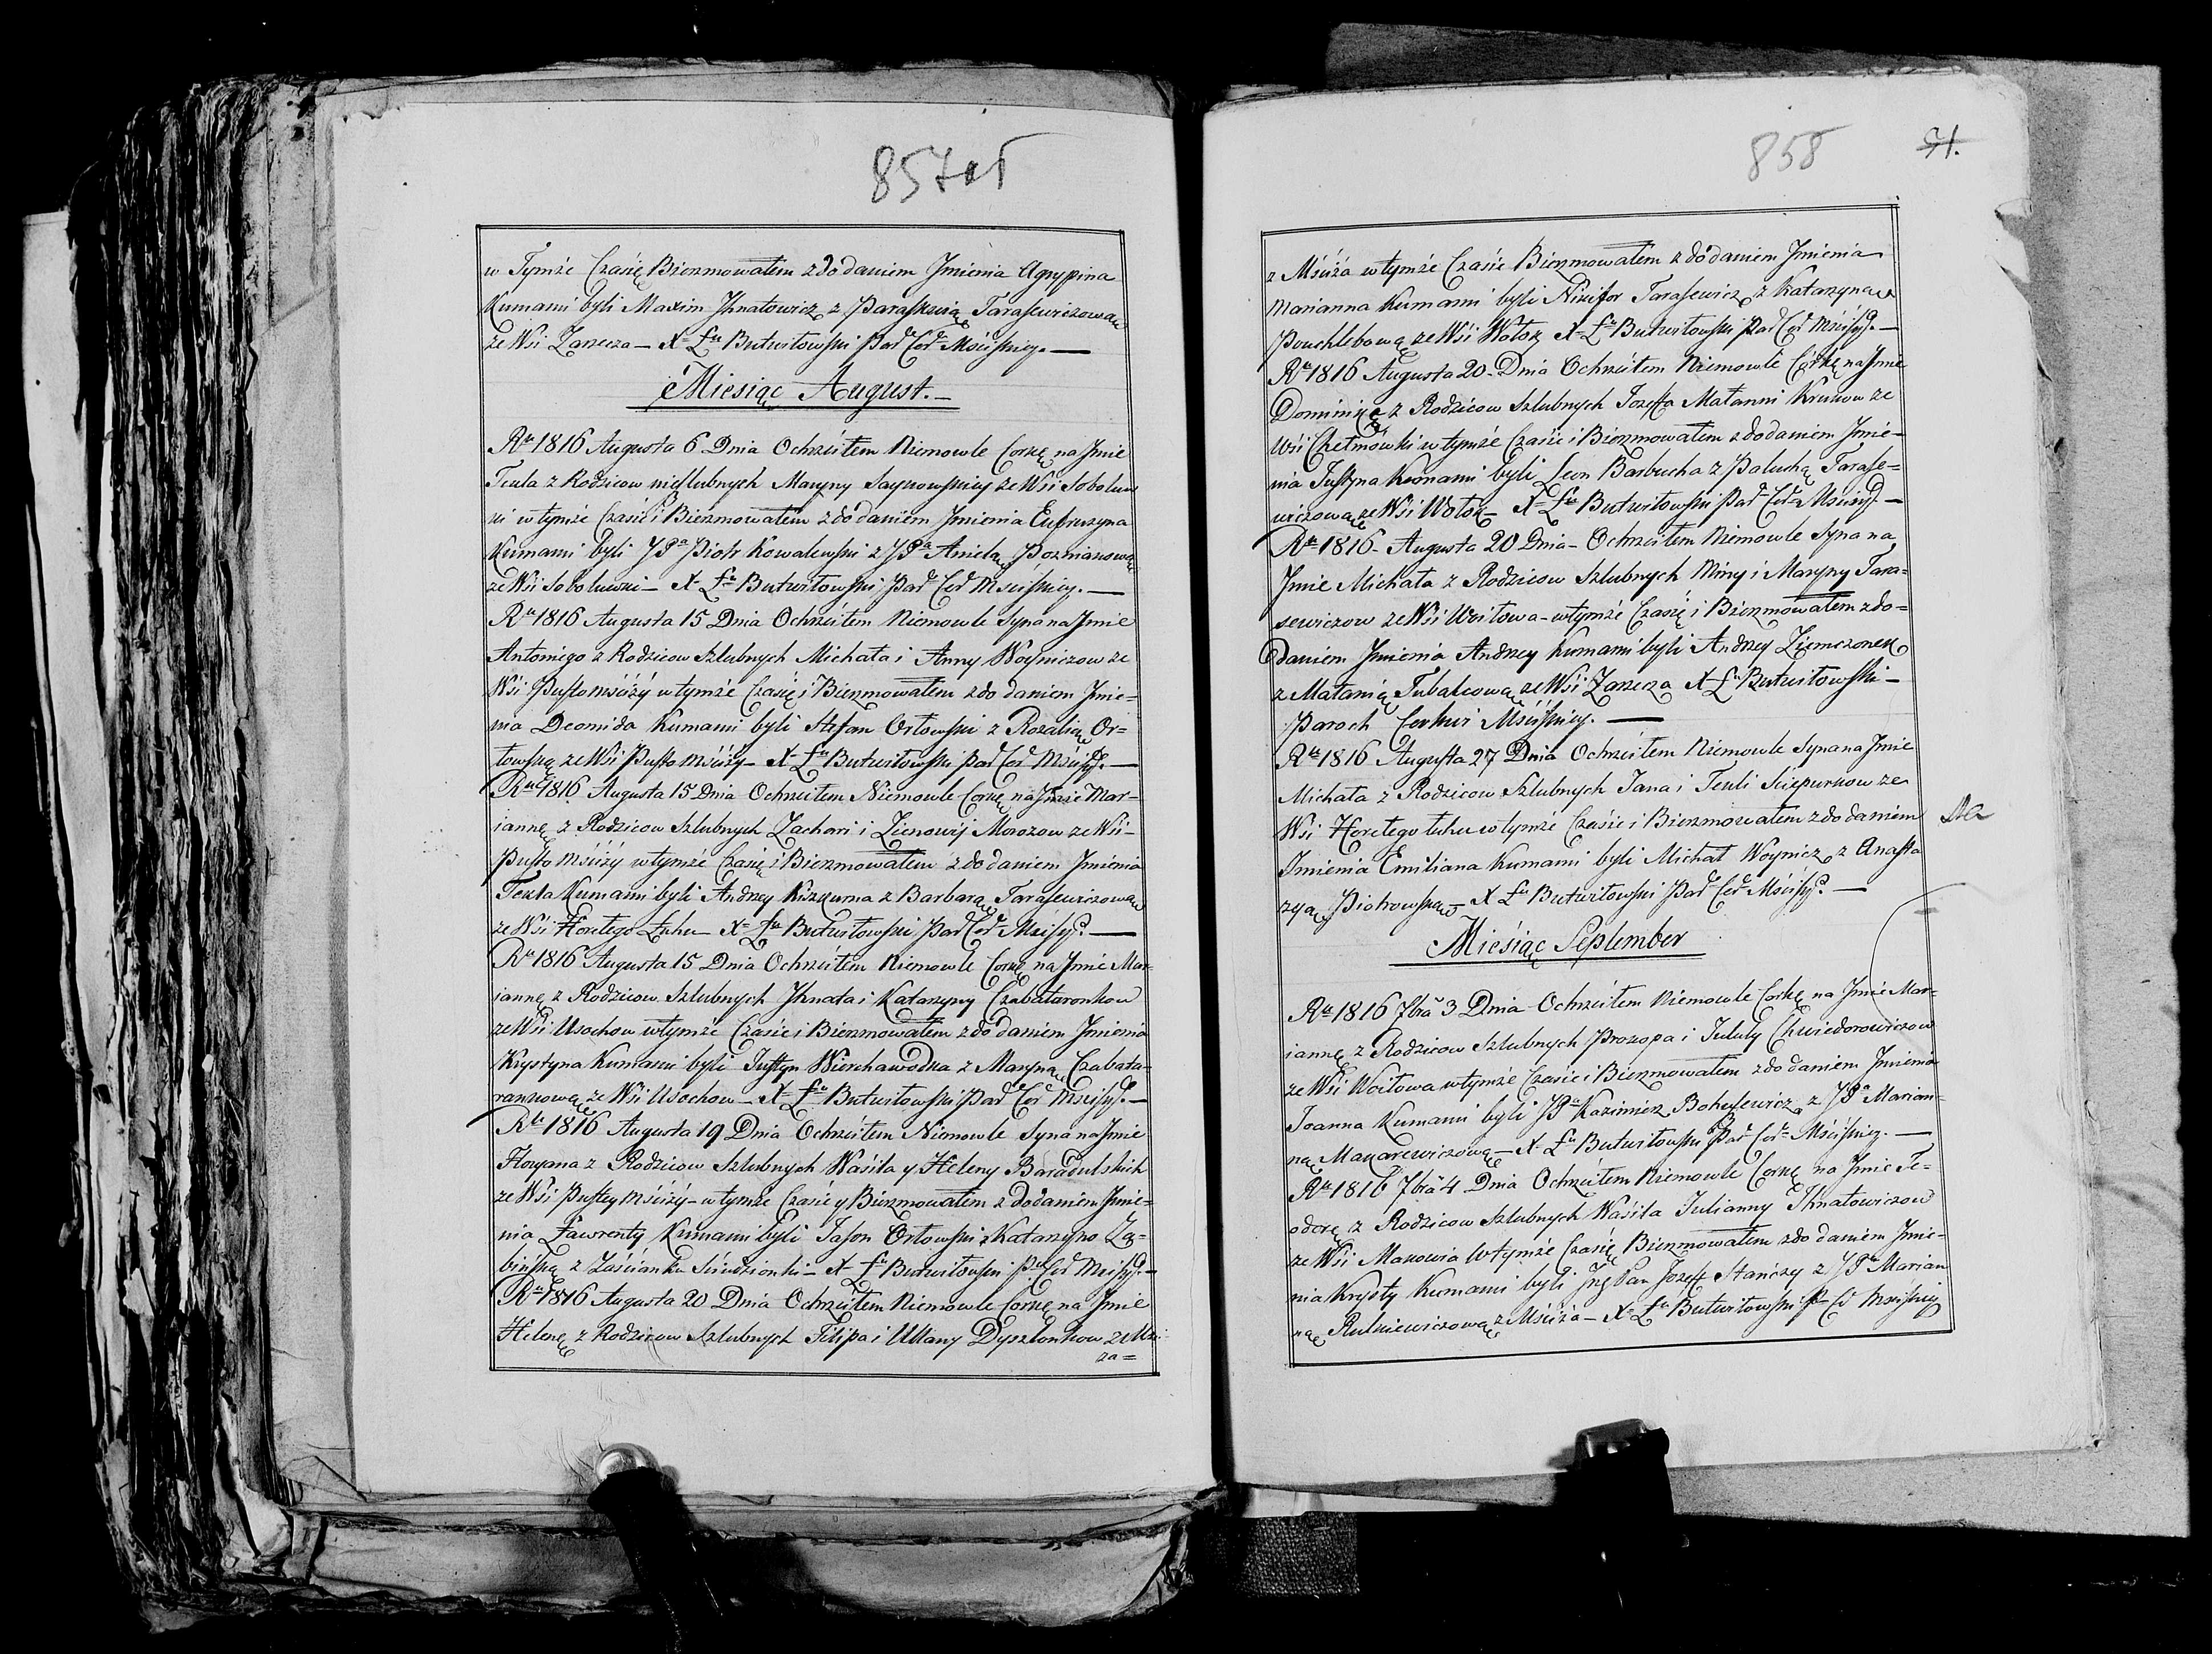 857об
w Tymże Czasię Bierzmowałem z dodaniem Jmienia Agrypina
Kumami byli Maxim Jhnatowicz z Paraskwią Tarasewiczową
ze Wsi Zarzecza – X Łu Buturłowski Par Cer Mściskiey. —
Miesiąc August. –
Rku 1816 Augusta 6 Dnia Ochrzciłem Niemowle Corkę na Jmie
Tekla z Rodzicow nieślubnych Maryny ze Wsi
w tymże Czasie i Bierzmowałem z dodaniem Jmienia Eufrozyna
Kumami byli JPa Piotr Kowalewski z JPa Anielą Poznianową
ze Wsi – X Łu Buturłowski Par Cer Msciskiey. —
Rku 1816 Augusta 15 Dnia Ochrzciłem Niemowle Syna na Jmie
Antoniego z Rodzicow Szlubnych Michała i Anny Woyniczow ze
Wsi Pustomściży w tymże Czasię i Bierzmowałem z dodaniem Jmie=
nia Deomida Kumami byli Stefan Orłowski z Rozalią Or=
łowską ze Wsi Pusto Mściży – X Łu Buturłowski Par Cer Mścisy. —
Rku 1816 Augusta 15 Dnia Ochrzciłem Niemowle Corkę na Jmie Mar=
iannę z Rodzicow Szlubnych Zachari i Zienowij Morozow ze Wsi –
Pusto Mściży w tymże Czasię i Bierzmowałem z dodaniem Jmienia
Tekla Kumami byli Andrzey Kiszkurna z Barbarą Tarasewiczową
ze Wsi Horełego Łuhu – X Łu Buturłowski Par Cer Mścisy. —
Rku 1816 Augusta 15 Dnia Ochrzciłem Niemowle Corkę na Jmie Mar=
iannę z Rodzicow Szlubnych Jhnata i Katarzyny Czabataronkow
ze Wsi Usochow w tymże Czasie i Bierzmowałem z dodaniem Jmienia
Krystyna Kumami byli Justyn Wierchawodka z Maryną Czabata=
rankową ze Wsi Usochow – X Łu Buturłowski Par Cer Mscisy. —
Rku 1816 Augusta 19 Dnia Ochrzciłem Niemowle Syna na Jmie
z Rodzicow Szlubnych Wasila y Heleny Baradulskich
ze Wsi Pustey Mściży – w tymże Czasie y Bierzmowałem z dodaniem Jmie=
nia Ławrenty Kumami byli Jason Orłowski z Katarzyno Zą=
bińską z Zaścianku – X Łu Buturłowski Par Cer Mscisy. —
Rku 1816 Augusta 20 Dnia Ochrzciłem Niemowle Corkę na Jmie
Helenę z Rodzicow Szlubnych Filipa i Ullany Dyszlonkow z Msci-
za=
858
71.
z Mściża w tymże Czasie Bierzmowałem z dodaniem Jmienia
Marianna Kumami byli Nikifor Tarasewicz z Katarzyną
Pouchlebową ze Wsi Wołok X Łu Buturłowski Par Cer Mścisy. —
Rku 1816 Augusta 20 – Dnia Ochrzciłem Niemowle Corkę na Jmie
Dominikę z Rodzicow Szlubnych Jozeffa Małanni Krukow ze
Wsi Chełmowki w tymże Czasie i Bierzmowałem z dodaniem Jmie=
nia Justyna Kumami byli Leon Barbucha z Paluchą Tarase=
wiczową ze Wsi Wołok – X Łu Buturłowski Par Cer Mścisy. —
Rku 1816 – Augusta 20 Dnia – Ochrzciłem Niemowle Syna na
Jmie Michała z Rodzicow Szlubnych Miny i Maryny Tara=
sewiczow ze Wsi Woitowa – w tymże Czasię i Bierzmowałem z do=
daniem Jmienia Andrzey Kumami byli Andrzey Ziemczonek
z Małanią Tubalcową ze Wsi Zarzecza X Łu Buturłowski –
Paroch Cerkwi Mściskiey. —
Rku 1816 Augusta 27 Dnia Ochrzciłem Niemowle Syna na Jmie
Michała z Rodzicow Szlubnych Jana i Tekli Sciepurkow ze
Wsi Horełego Łuhu w tymże Czasie i Bierzmowałem z dodaniem
Jmienia Emiliana Kumami byli Michał Woynicz z Anasta
zyą Piotrowską – X Łu Buturłowski Par Cer Mścisy. —
Miesiąc September
Rku 1816 7bra 3 Dnia Ochrzciłem Niemowle Corkę na Jmie Mar=
iannę z Rodzicow Szlubnych Prokopa i Jululy Chwiedorowiczow
ze Wsi Woitowa w tymże Czasie i Bierzmowałem z dodaniem Jmienia
Joanna Kumami byli JPa Kazimierz Bohusewicz z JPa Marian=
ną Makarewiczową – X Łu Buturłowski Par Cer Mściskiey. —
Rku 1816 7bra 4 Dnia Ochrzciłem Niemowle Corkę na Jmie Te=
odorę z Rodzicow Szlubnych Wasila Julianny Jhnatowiczow
ze Wsi Makowia W tymże Czasię Bierzmowałem z dodaniem Jmie=
nia Krydty Kumami byli Jng Pan Jozeff Stańczey z JPa Marian
ną Rutkiewiczową z Mściża – X Łu Buturłowski P Cer Mściskiey